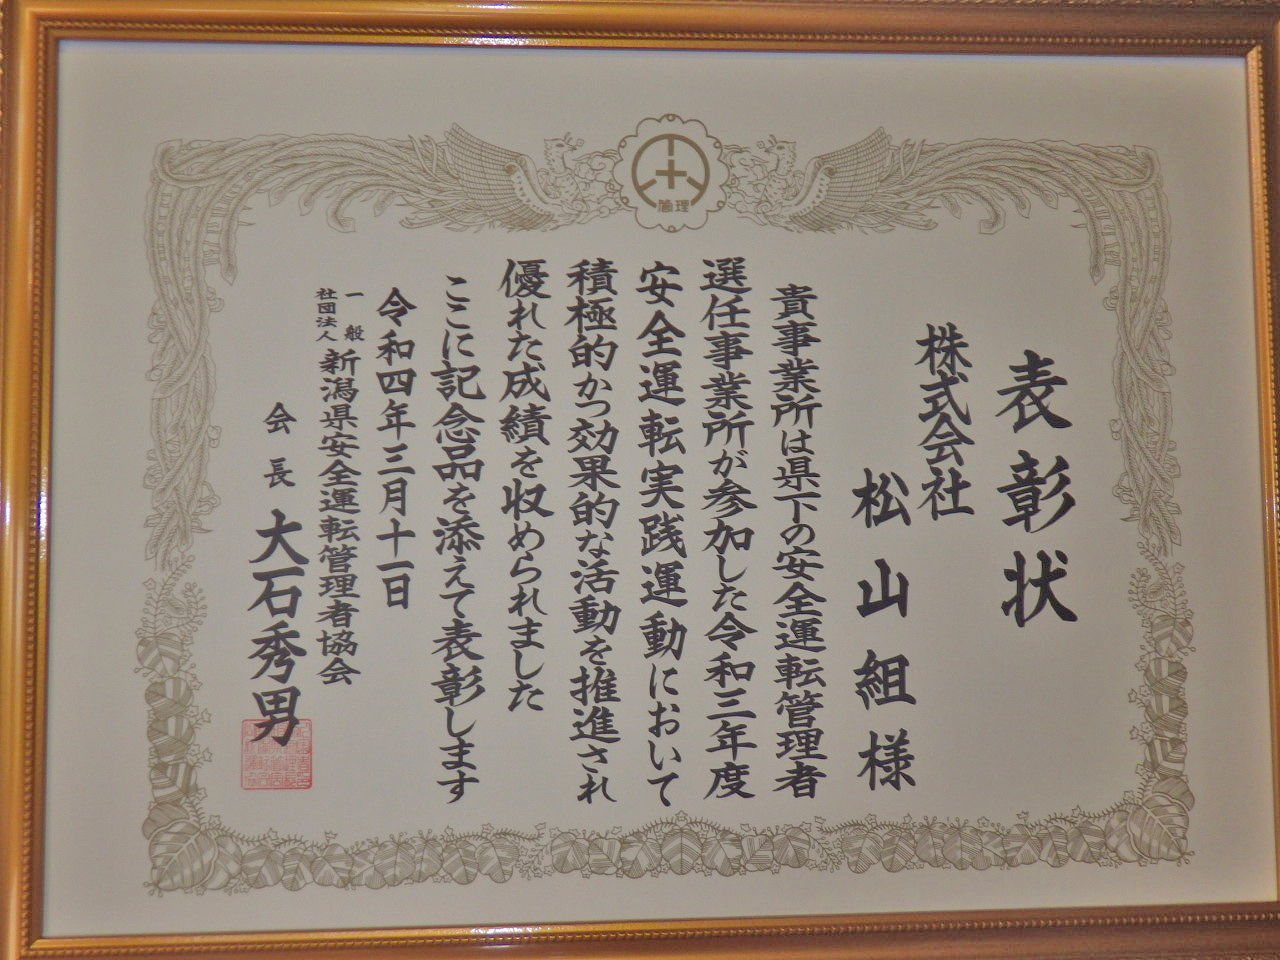 管理
表彰状
株式会社
松山組様
貴事業所は県下の安全運転管理者
選任事業所が参加した令和三年度
安全運転実践運動において
積極的かつ効果的な活動を推進され
優れた成績を収められました
ここに記念品を添えて表彰します
令和四年三月十一日
一般
社団法人
新潟県安全運転管理者協会
会長 大石秀男